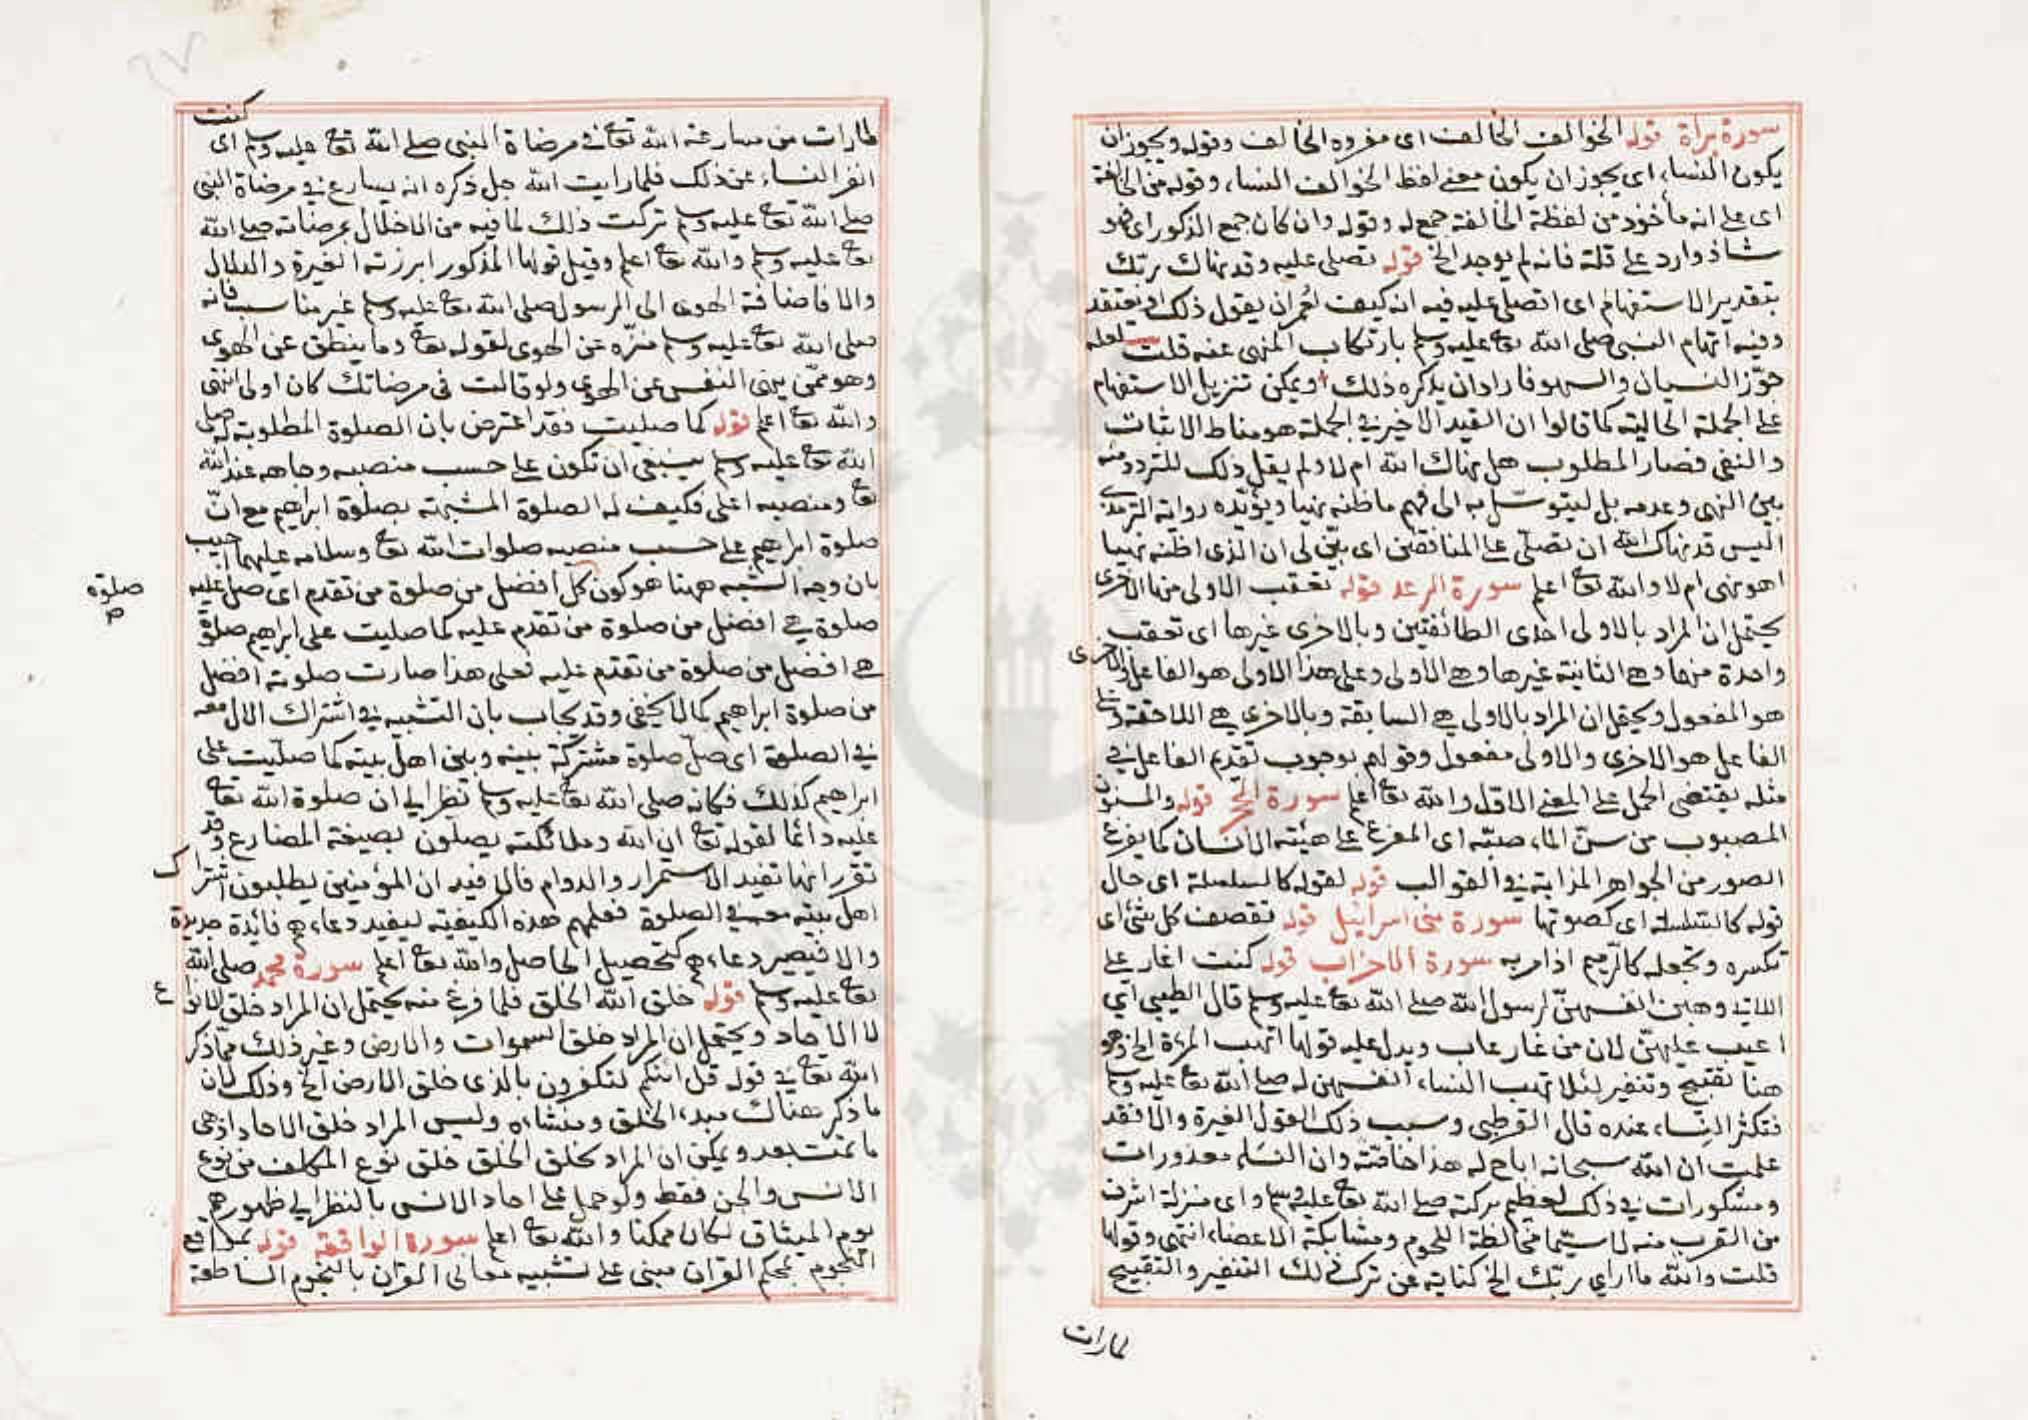 سورة براة قوله الخوالف الخالف اى مفرده الخالف وقوله ويجوز ان
يكون النساء اى يجوز ان يكون معنى لفظ الخوالف النساء، وقوله من الخالفة
اى على انه مأخوذ من لفظة الخالفة جمع له وقوله وان كان جمع الذكور اى فهو
شاذ وارد على قلة فانه لم يوجد الخ قوله تصلى عليه وقد نهاك ربك
بتقدير الاستفهام اى اتصلى عليه فيه انه كيف لعمر ان يقول ذلك او يعتقد
وفيه اتهام النبى صلى الله تعا عليه وسلم بارتكاب المنهى عنه قلت لعله
جوّز النسيان والسهو فاراد ان يذكره ذلك ويمكن تنزيل الاستفهام
على الجملة الحالية كما قالوا ان القيد الاخير في الجملة هو مناط الاثبات
والنفى فصار المطلوب هل نهاك الله ام لا ولم يقل ذلك للتردد منه
بين النهى وعدمه بل ليتوسّل به الى فهم ما ظنه نهيا ويؤيّده رواية الترمذى
اليس قد نهاك الله ان تصلّى على المنافقين اى بيّن لى ان الذى اظنه نهيا
اهو نهى ام لا والله تعا اعلم سورة الرعد قوله تعقب الاولى منها الاخرى
يحتمل ان المراد بالاولى احدى الطائفتين وبالاخرى غيرها اى تعقب
واحدة منها وهى الثانية غيرها وهى الاولى وعلى هذا الاولى هو الفاعل والاخرى
هو المفعول ويحتمل ان المراد بالاولى هى السابقة وبالاخرى هى اللاحقة وعلى
الفاعل هو الاخرى والاولى مفعول وقولهم بوجوب تقديم الفاعل في
مثله يقتضى الحمل على المعنى الاول والله تعا اعلم سورة الحجر قوله والمسنون
المصبوب من سنّ الماء صبّه اى المفرغ على هيئة الانسان كما يفرغ
الصور من الجواهر المذابة في القوالب قوله لقوله كالسلسلة اى حال
قوله كالسلسلة اى كصوتها سورة بنى اسرائيل قوله تقصف كل شئ اى
تكسره وتجعله كالرّميم اذا مر به سورة الاحزاب قوله كنت اغار على
اللاتى وهبن انفسهنّ لرسول الله صلى الله تعا عليه وسلم قال الطيبى اى
اعيب عليهنّ لان من غار عاب ويدل عليه قولها اتهب المرأة الخ وهو
هنا تقبيح وتنفير لئلا تهب النساء، انفسهن له صلى الله تعا عليه وسلم
فتكثر النساء، عنده قال القرطبى وسبب ذلك القول الغيرة والا فقد
علمت ان الله سبحانه اباح له هذا خاصّة وان النساء معذورات
ومشكورات في ذلك لعظيم بركته صلى الله تعا عليه وسلم واى منزلة اشرف
من القرب منه لا سيّما مخالطة اللحوم ومشابكة الاعضاء، انتهى وقولها
قلت والله ما ارى ربّك الخ كناية عن ترك ذلك التنفير والتقبيح
لما رات
كنت
لما رات من مسارعة الله تعا في مرضاة النبى صلى الله تعا عليه وسلم اى
انفر النساء، عن ذلك فلما رايت الله جل ذكره انه يسارع في مرضاة النبى
صلى الله تعا عليه وسلم تركت ذلك لما فيه من الاخلال بمرضاته صلى الله
تعا عليه وسلم والله تعا اعلم وقيل قولها المذكور ابرزته الغيرة والدلال
والا فاضافة الهوى الى الرسول صلى الله تعا عليه وسلم غير مناسب فانه
صلى الله تعا عليه وسلم منزّه عن الهوى لقوله تعا وما ينطق عن الهوى
وهو ممّن ينهى النفس عن الهوى ولو قالت فى مرضاتك كان اولى انتهى
والله تعا اعلم قوله كما صليت فقد اعترض بان الصلوة المطلوبة له صلى
الله تعا عليه وسلم ينبغى ان تكون على حسب منصبه وجاهه عند الله
تعا ومنصبه اعلى فكيف له الصلوة المشبهة بصلوة ابراهيم مع انّ
صلوة ابراهيم على حسب منصبه صلوات الله تعا وسلامه عليهما اجيب
بان وجه الشبه ههنا هو كون كل افضل من صلوة من تقدم اى صل عليه
صلوة
صلوة هى افضل من صلوة من تقدم عليه كما صليت على ابراهيم صلوة
هى افضل من صلوة من تقدم عليه فعلى هذا صارت صلوته افضل
من صلوة ابراهيم كما لا يخفى وقد يجاب بان التشبيه في اشتراك الال معه
في الصلوة اى صلّ صلوة مشتركة بينه وبين اهل بيته كما صلّيت على
ابراهيم كذلك فكانه صلى الله تعا عليه وسلم نظر الى ان صلوة الله تعا
عليه دائما لقوله تعا ان الله وملائكته يصلون بصيغة المضارع وقد
تقرر انها تفيد الاستمرار والدوام فالا فيد ان المؤمنين يطلبون اشتراك
اهل بيته معه في الصلوة فعلمهم هذه الكيفية ليفيد دعاءهم فائدة جديدة
والا فيصير دعاءهم كتحصيل الحاصل والله تعا اعلم سورة محمد صلى الله
تعا عليه وسلم قوله خلق الله الخلق فلما فرغ منه يحتمل ان المراد خلق الانواع
لا الاحاد ويحتمل ان المراد خلق السموات والارض وغير ذلك ممّا ذكر
الله تعا في قوله قل ائنكم لتكفرون بالذى خلق الارض الخ وذلك لان
ما ذكر هناك مبدء الخلق ومنشاءه وليس المراد خلق الاحاد اذ هى
ما تمت بعد ويمكن ان المراد بخلق الخلق خلق نوع المكلف من نوع
الانس والجن فقط ولو حمل على احاد الانس بالنظر الى ظهورهم
يوم الميثاق لكان ممكنا والله تعا اعلم سورة الواقعة قوله بمواقع
النجوم بمحكم القران مبنى على تشبيه معانى القران بالنجوم الساطعة